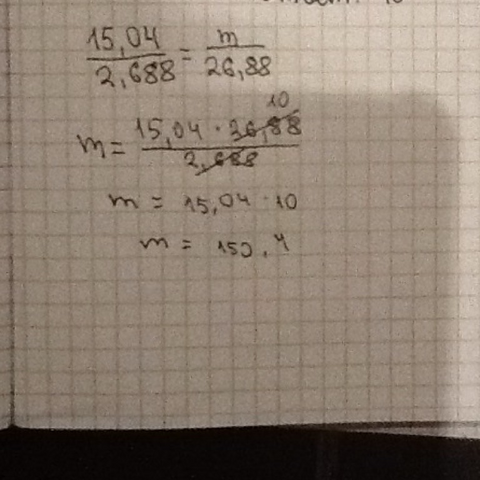 15,04/2,688 = m/26,88
m = 15,04 · 26,88/2,688 10
m = 15,04 · 10
m = 150,4